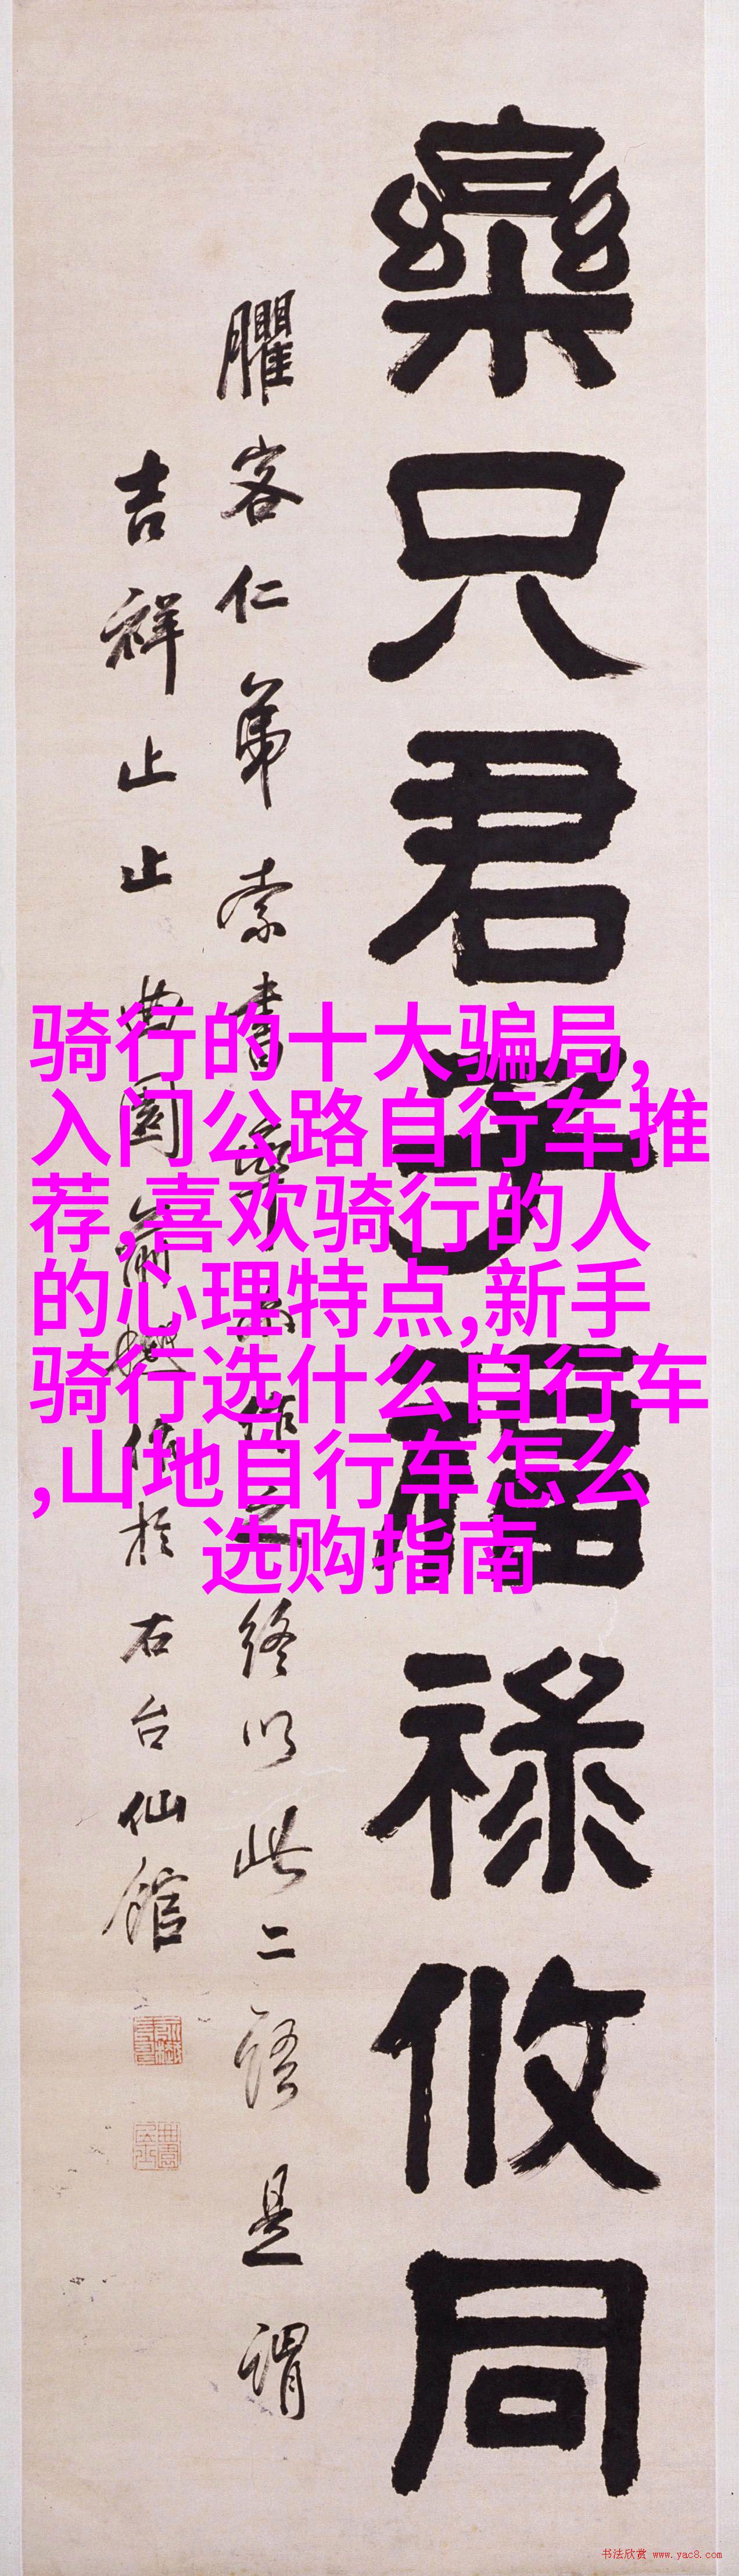 樂只君子福祿攸同
臞客仁弟索書
終以此二語是謂
吉祥止止曲園俞樾
於右台仙館
骑行的十大骗局,
入门公路自行车推
荐,喜欢骑行的人
的心理特点,新手
骑行选什么自行车
,山地自行车怎么
选购指南
书法欣赏 www.yac8.com